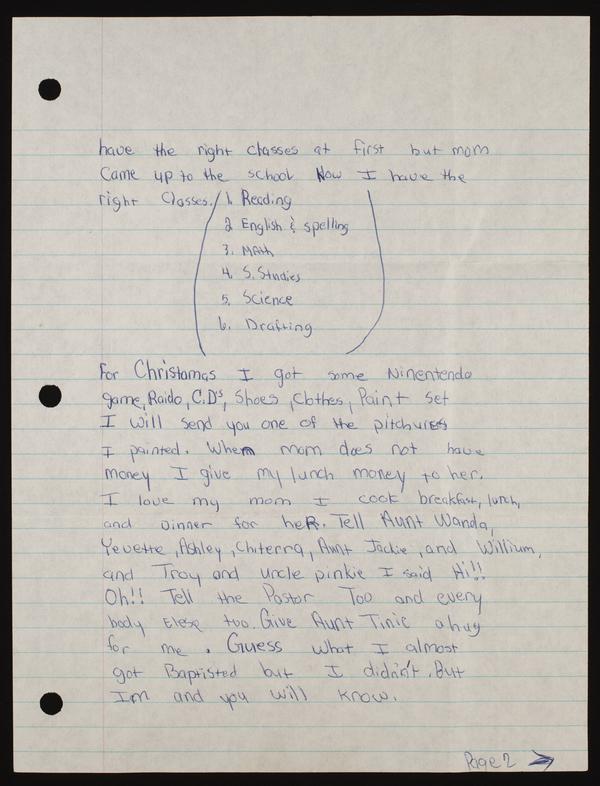 have the right classes at first but mom
Came up to the school Now I have the
right Classes. 1. Reading
2 English & spelling
3. Math
4. S. Studies
5. Science
6. Drafting
For Christamas I got some Ninentendo
game, Raido, C.D's, Shoes, Clothes, Paint set
I will send you one of the pitchures
I painted. When mom does not have
money I give my lunch money to her.
I love my mom I cook breakfast, lunch,
and Dinner for heR. Tell Aunt Wanda,
Yevette, Ashley, Chiterra, Aunt Jackie, and Willium,
and Troy and uncle pinkie I said Hi!!
Oh!! Tell the Pastor Too and every
body Elese too. Give Aunt Tinie a hug
for me. Guess what I almost
got Baptisted but I didnn't. But
Im and you will know.
Page 2